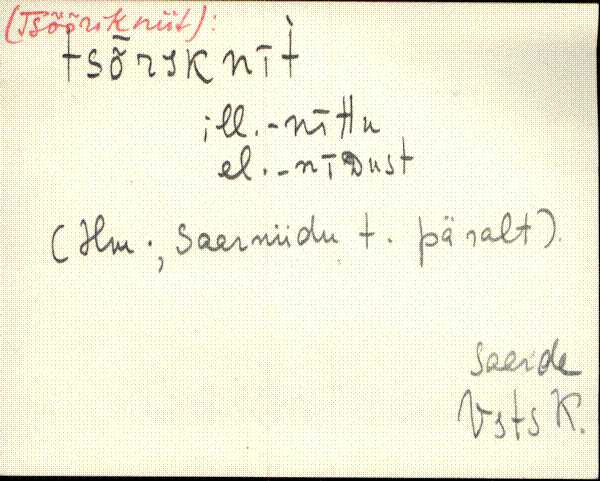 (Tsõõrikniit):
tsȭriknīt̀
ill. -nīttu
el. -nīDust
(Hm.; Saerniidu t. päralt).
Saerde
Vsts K.